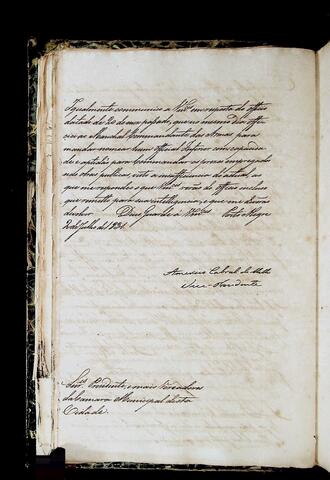 Igualmente communico a Vm.ces em resposta do officio
datado de 20 do mez passado, que no mesmo dia offi-
ciei ao Marechal Commandante das Armas para
mandar nomear hum official Inferior com
e aptidão para Commandar os prezos empregados
nas obras publicas, visto a insufficiencia do actual, ao
que me respondeo o que Vm.ces verão do officio incluso
que remetto para sua intelligencia, e que me devem
devolver. Deos Guarde a Vm.ces Porto Alegre
2 de Julho de 1831.
Americo Cabral de Mello
Vice-Prezidente
Snr.es Prezidente, e mais Vereadores
da Camara Municipal desta
Cidade.